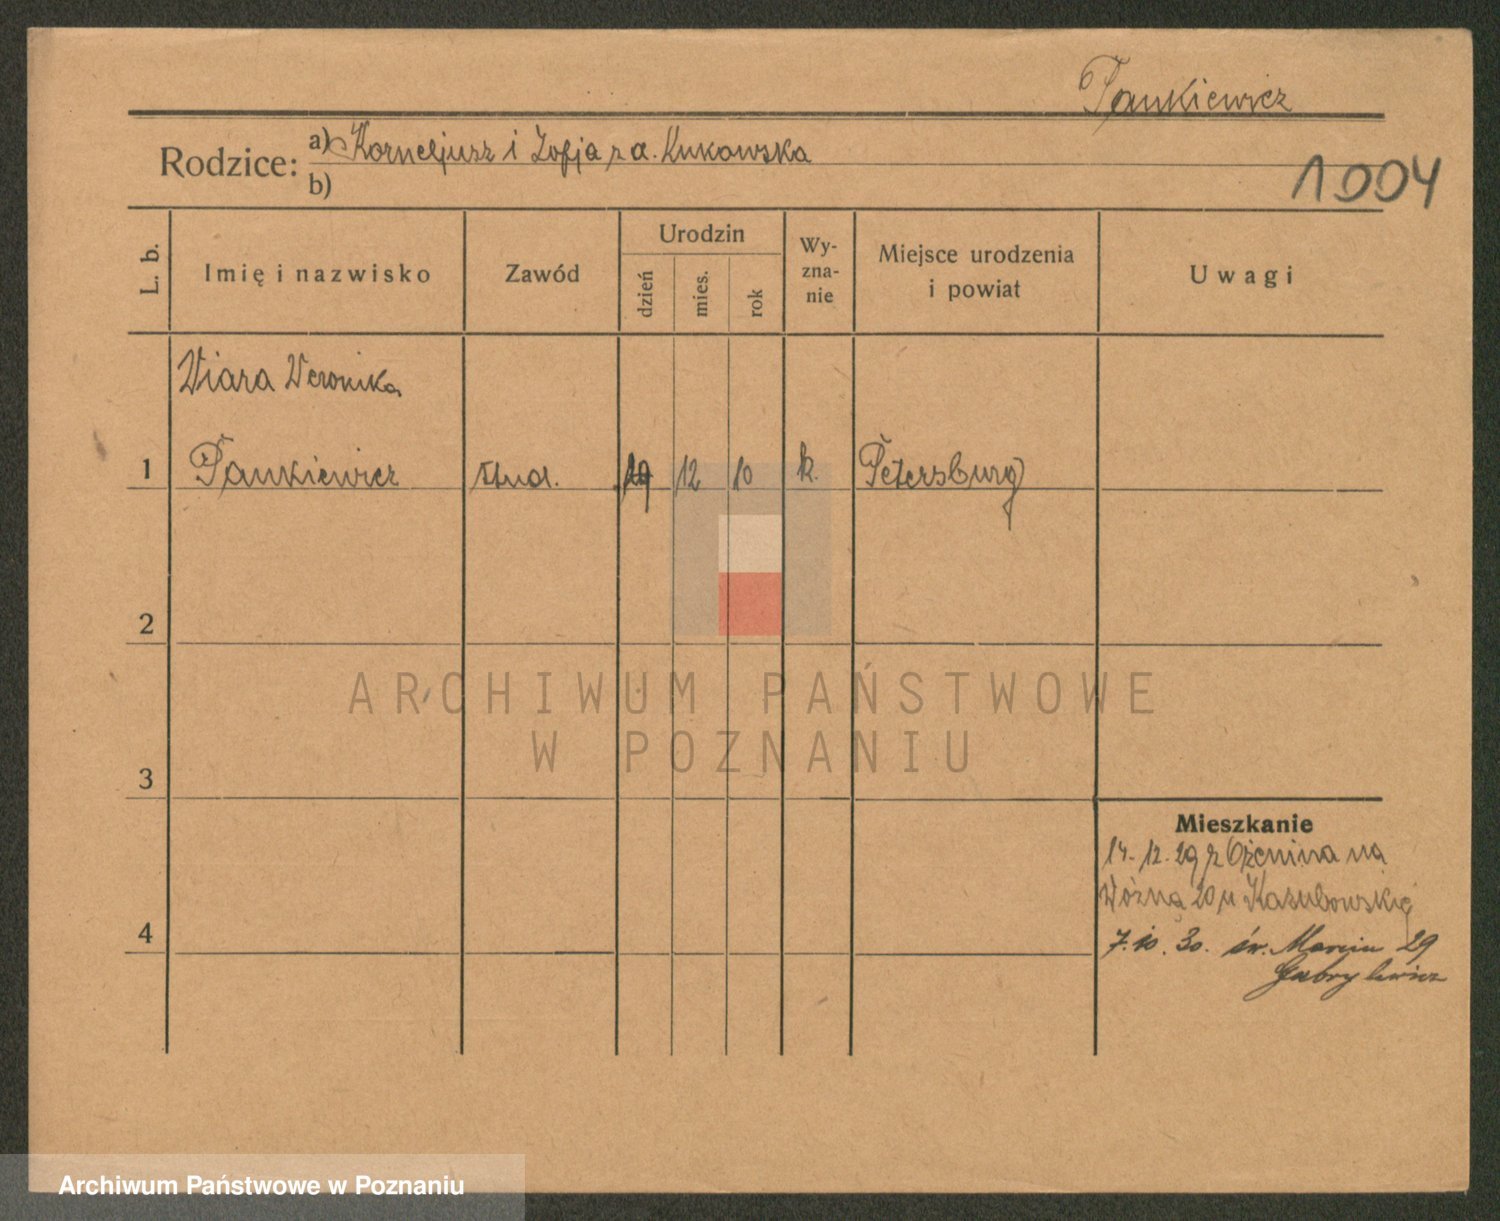 Pankiewicz
Rodzice: a) Korneljusz i Zofja z d. Kukowska
b)
1004
L. b.
Imię i nazwisko
Zawód
Urodzin
dzień
mies.
rok
Wy-
zna-
nie
Miejsce urodzenia
i powiat
Uwagi
Wiara Weronika
1 Pankiewicz stud. 12 10 k. Petersburg
2
3
4
Mieszkanie
14.12.29 z Ożenina na
Woźną 20 u Kazubowskiej
7.10.30. św. Marcin 29
Gabrylewicz
ARCHIWUM PAŃSTWOWE
W POZNANIU
Archiwum Państwowe w Poznaniu